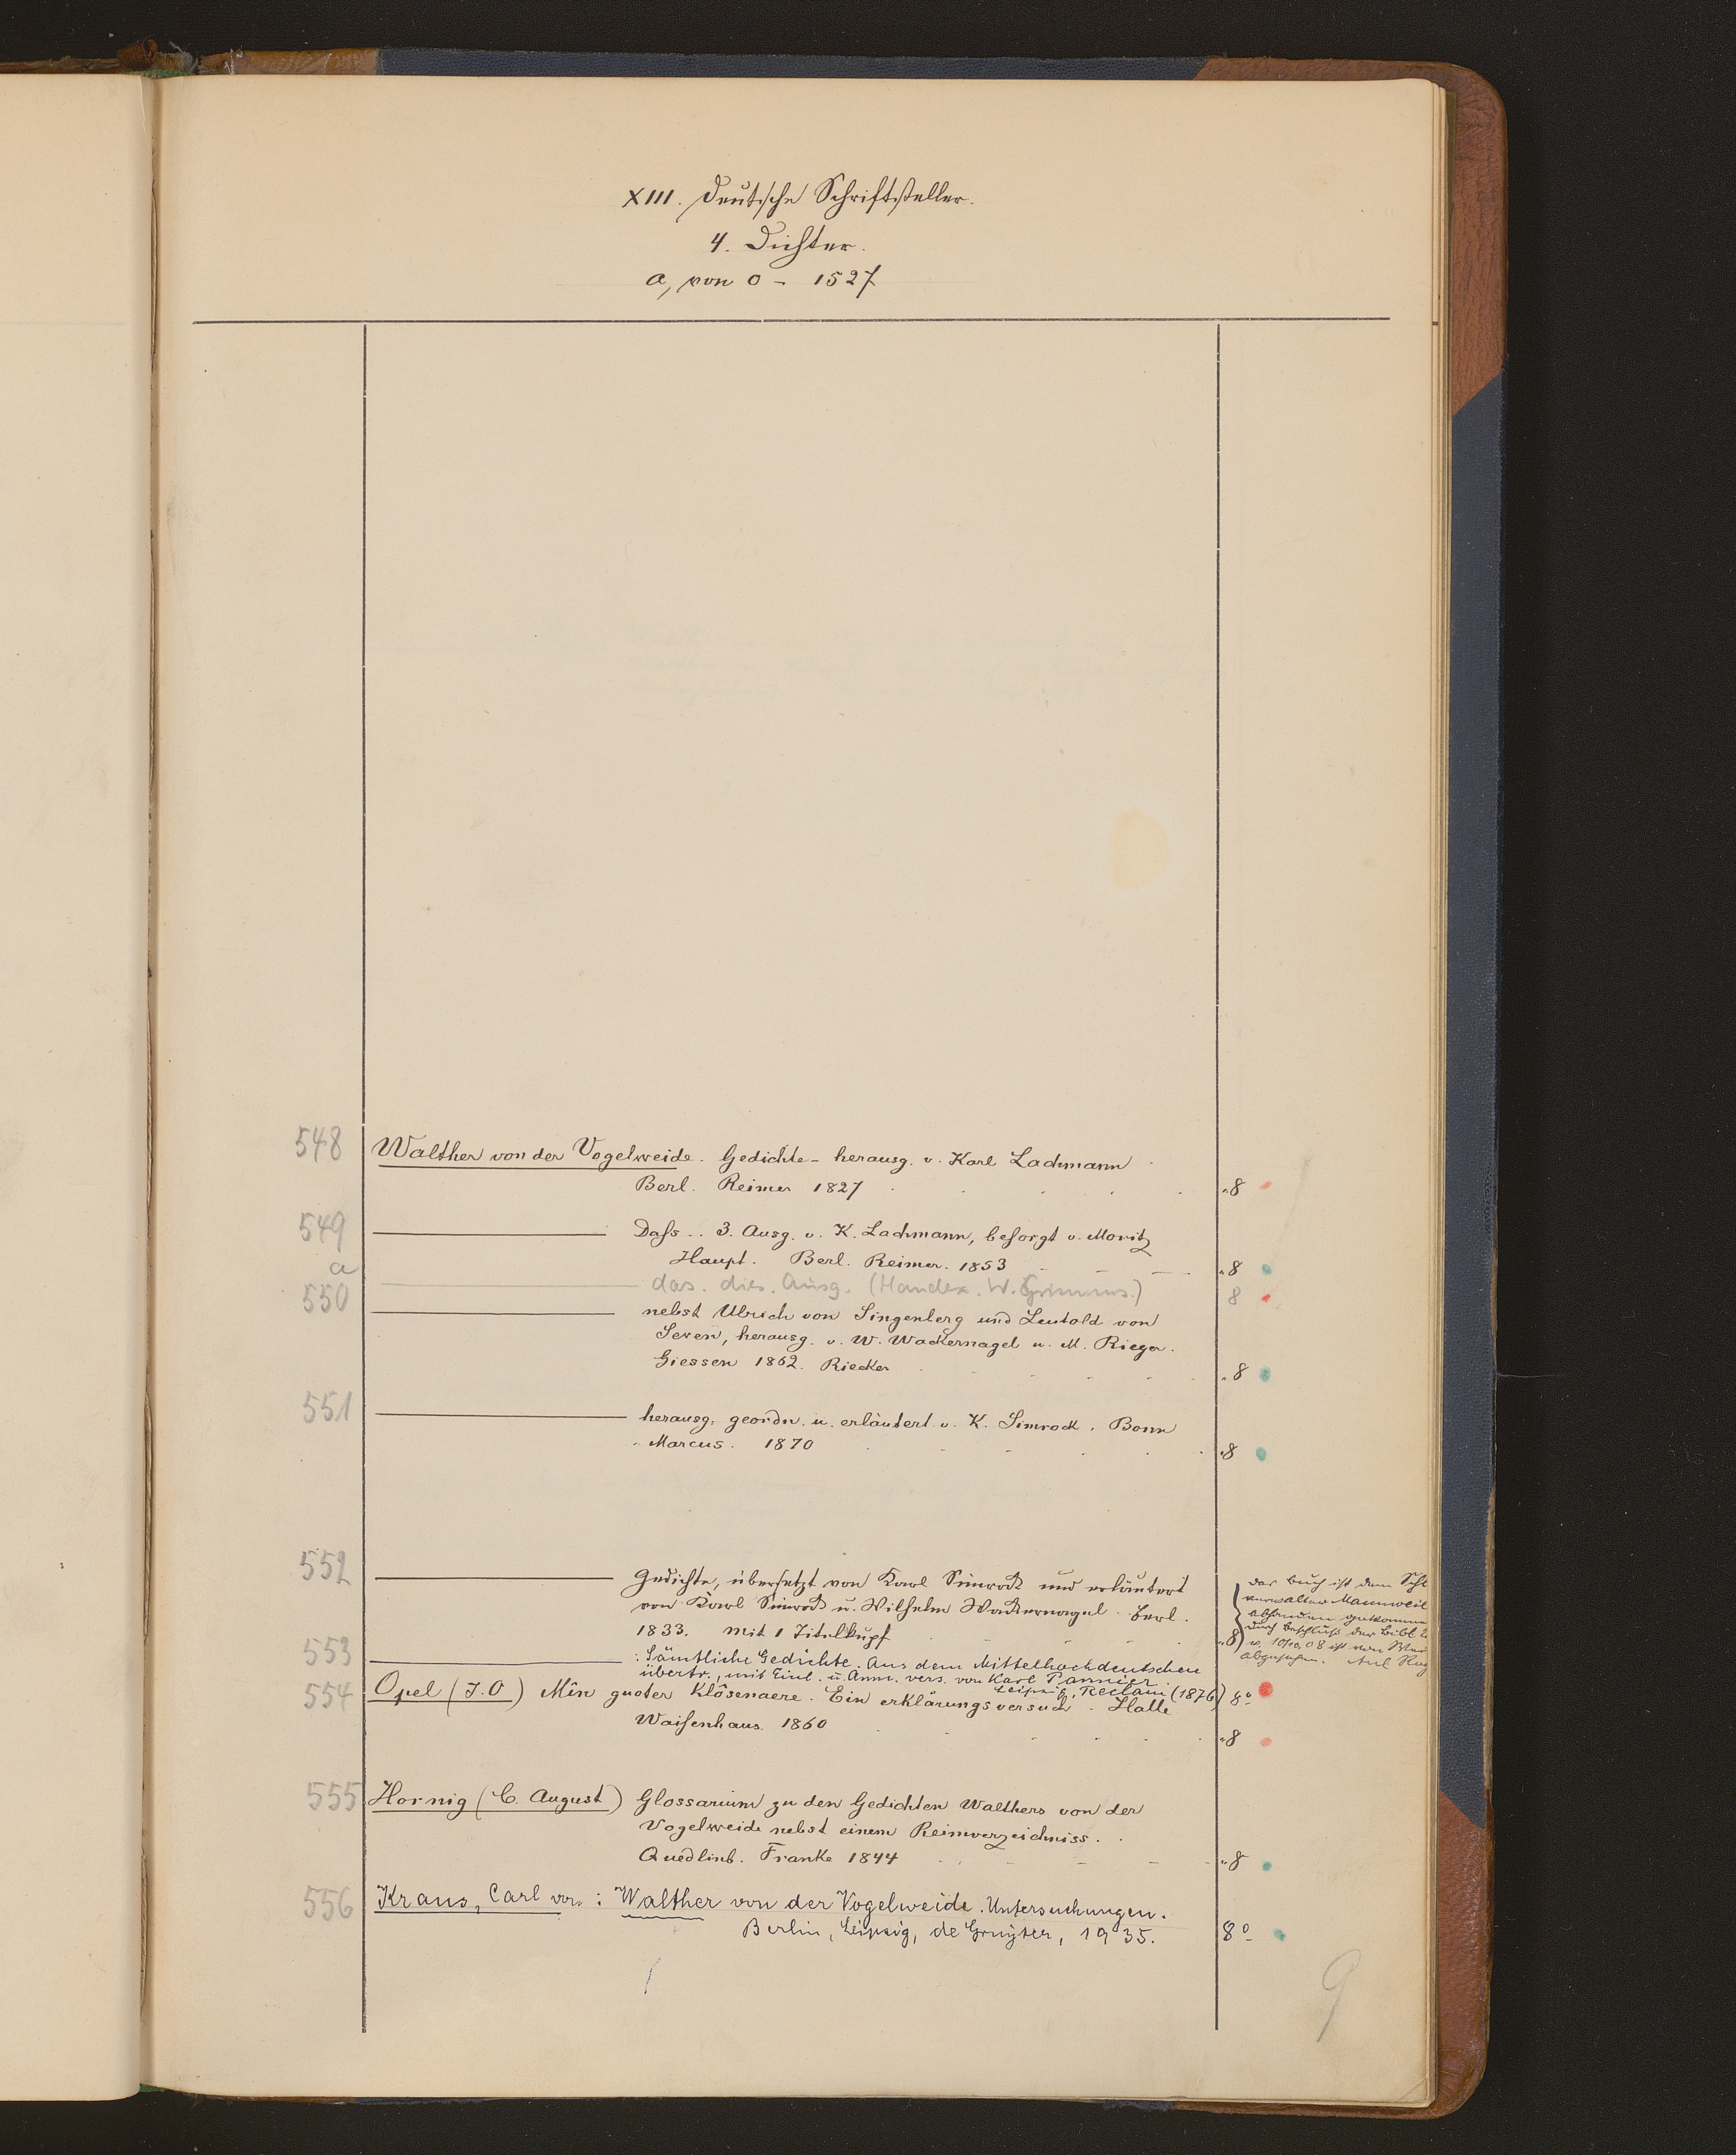 XIII. Deutsche Schriftsteller.
4. Dichter.
a, von 0 - 1527
548 Walther von der Vogelweide. Gedichte - herausg. v. Karl Lachmann
Berl. Reimer 1827 8
549 Dass.. 3. Ausg. v. K. Lachmann, besorgt v. Moritz
Haupt. Berl. Reimer. 1853 8
a das. dies. Ausg. (Handex. W. Grimms.) 8
550 nebst Ulrich von Singenberg und Leutold von
Seven, herausg. v. W. Wackernagel u. M. Rieger.
Giessen 1862. Riecker 8
551 herausg. geordn. u. erläutert v. K. Simrock. Bonn
Marcus. 1870 8
552 Gedichte, übersetzt von Karl Simrock und erläutert
von Karl Simrock u. Wilhelm Wackernagel. Berl.
1833. mit 1 Titelkupf 8
das Buch ist dem
verwalter Mannweil
abhanden gekommen
durch Beschluß der Bibl.
v. 10/10.08 ist von
abgesehen.
553 : Sämtliche Gedichte. Aus dem Mittelhochdeutschen
übertr., mit Einl. u. Anm. vers. von Karl Pannier.
Leipzig, Reclam (1876) 8°
554 Opel (J. O) Mîn guoter Klôsenaere. Ein erklärungsversuch. Halle
Waisenhaus. 1860 8
555 Hornig (C. August) Glossarium zu den Gedichten Walthers von der
Vogelweide nebst einem Reimverzeichniss.
Quedlinb. Franke 1844 8
556 Kraus, Carl von: Walther von der Vogelweide. Untersuchungen.
Berlin, Leipzig, de Gruyter, 1935. 8°
9